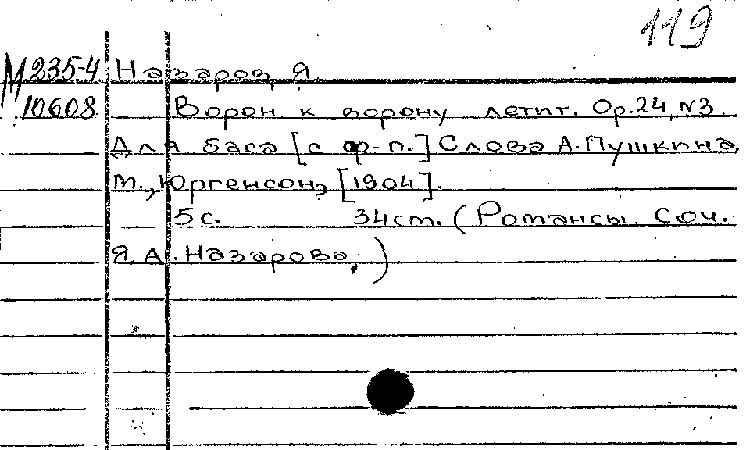 119
М 235-4 Назаров, Я.
10608 Ворон к ворону летит. Op.24, N3.
Для баса [с ф-п.] Слова А.Пушкина.
М., Юргенсон, [1904].
5 с. 34 см. (Романсы. Соч.
Я.А. Назарова,)